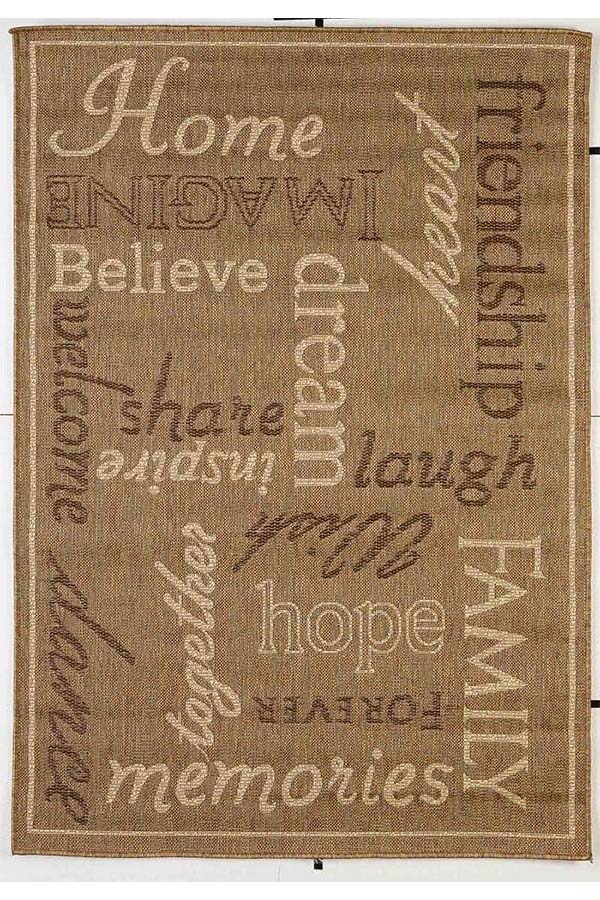 Home
IMAGINE
heart
friendship
Believe
dream
welcome
share
inspire
laugh
Wish
together
FAMILY
hope
dance
FOREVER
memories